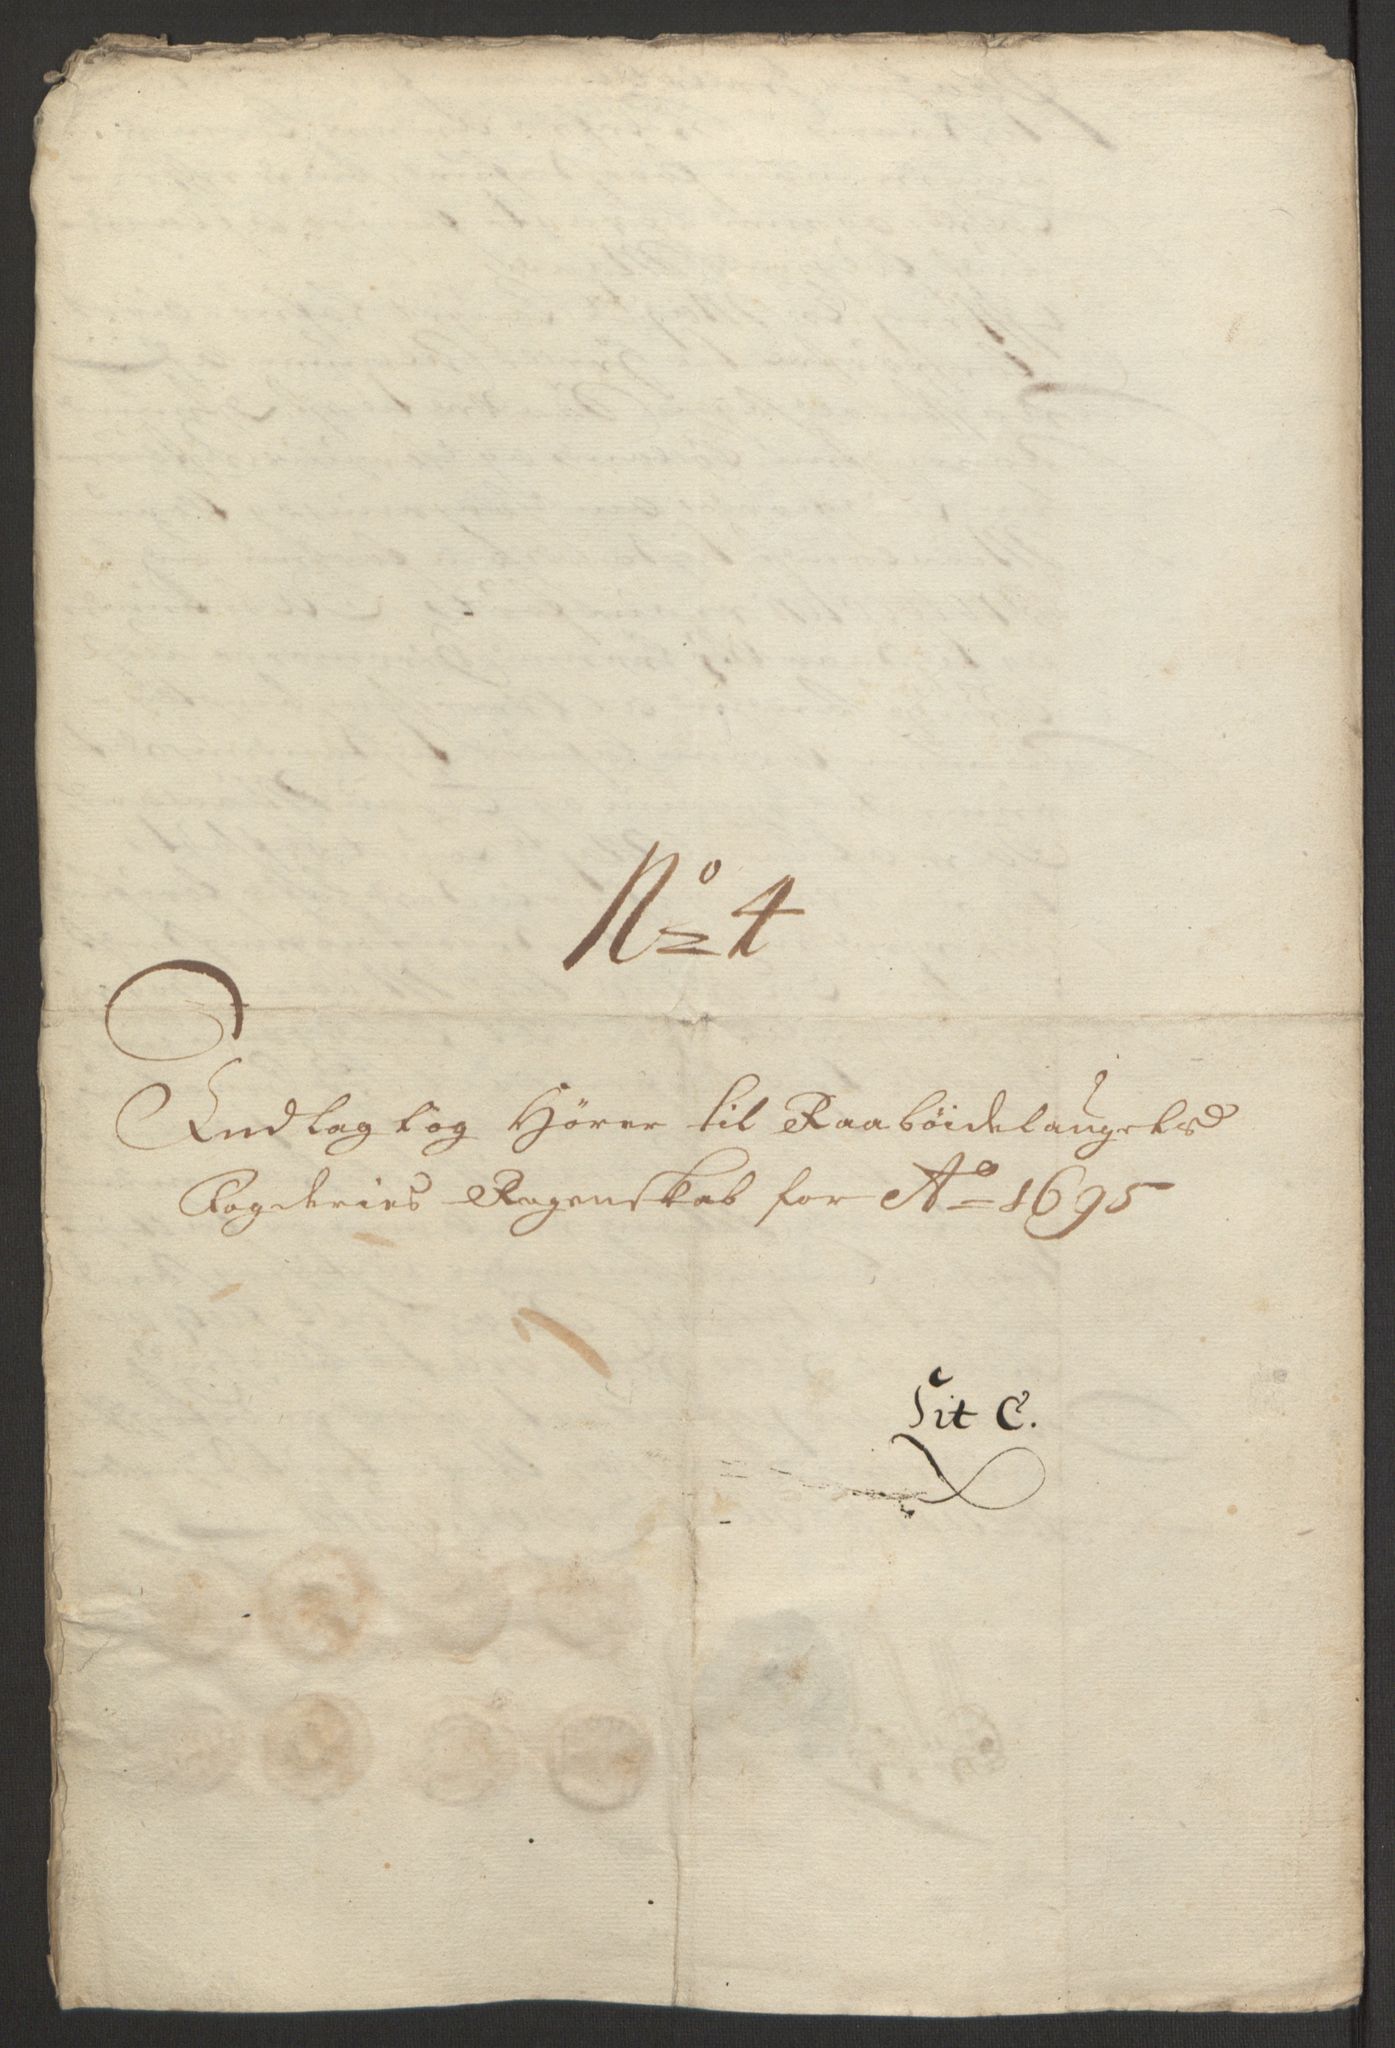 No 4
Indlagt og Hörer til Raaböidelaugets
Fogderies Regenskab for Ao 1695
Lit C.